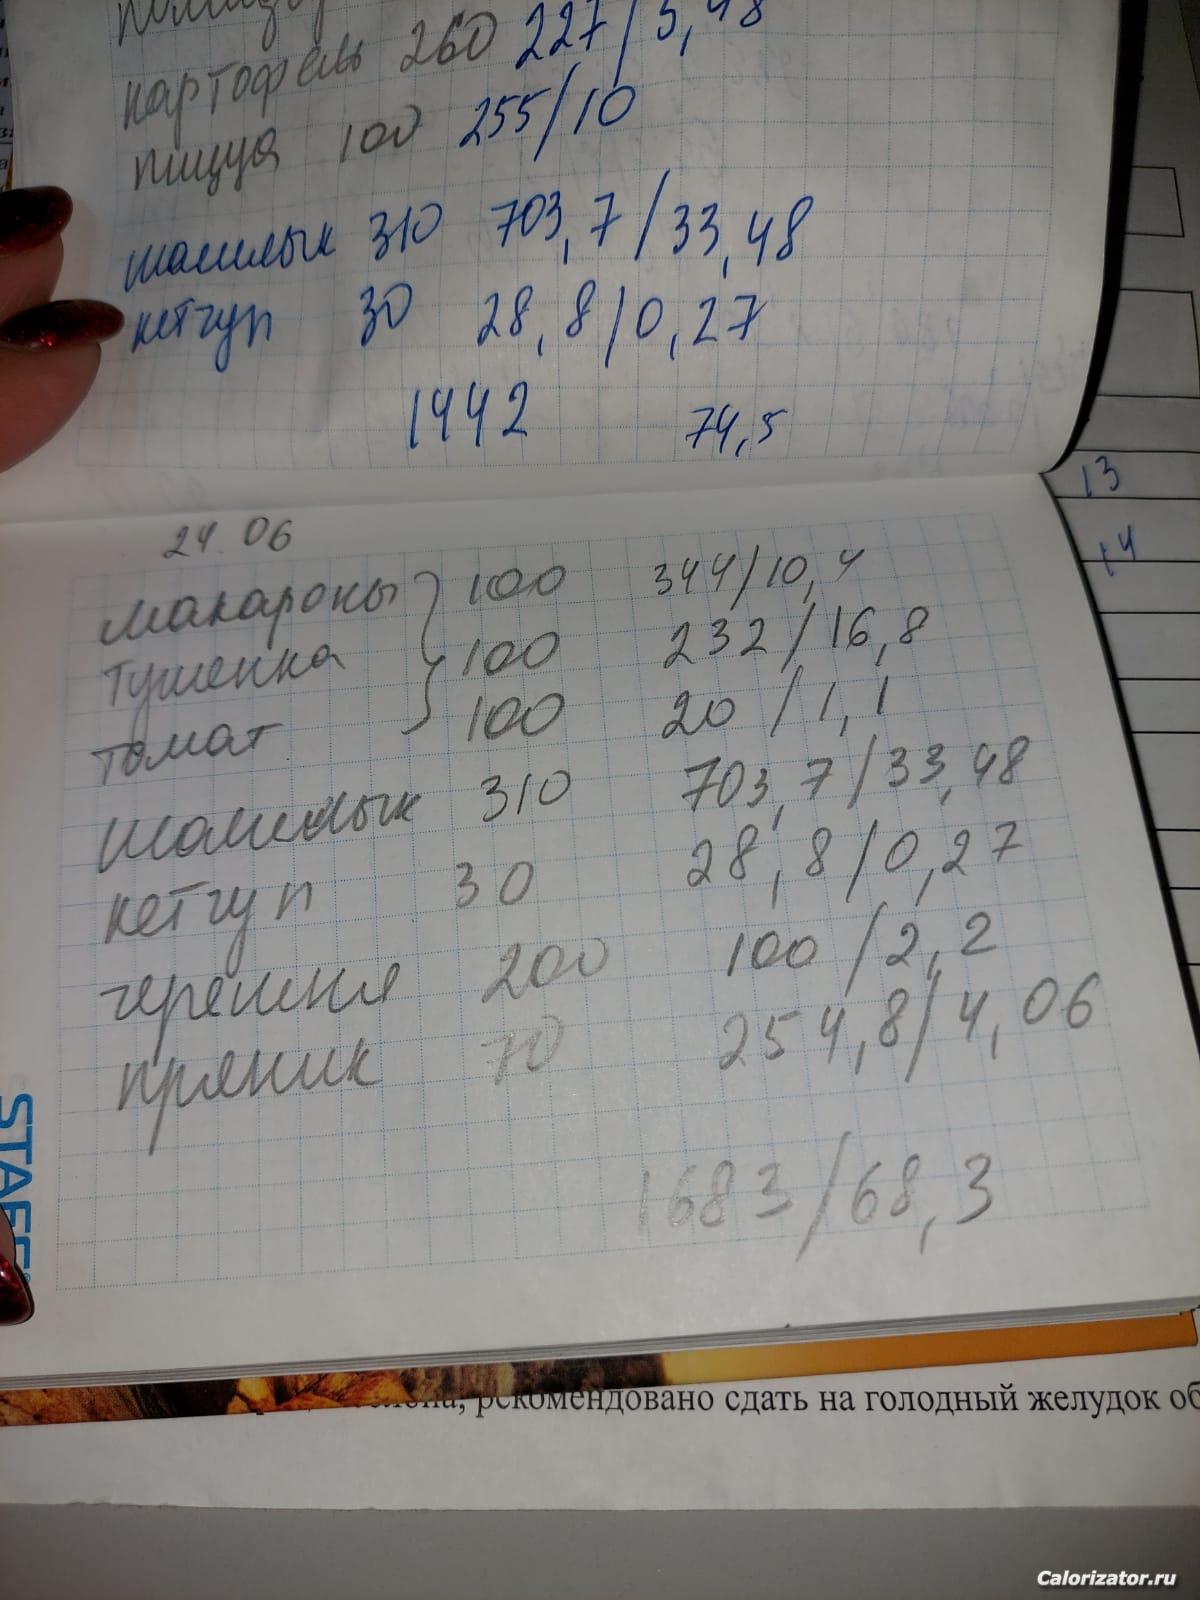 картофель 260 227/5,48
пицца 100 255/10
шашлык 310 703,7/33,48
кетчуп 30 28,8/0,27
1442 74,5
13
14
24.06
макароны 100 344/10,4
тушенка 100 232/16,8
томат 100 20/1,1
шашлык 310 703,7/33,48
кетчуп 30 28,8/0,27
черешня 200 100/2,2
пряник 70 254,8/4,06
1683/68,3
STAFF
рекомендовано сдать на голодный желудок об
Calorizator.ru